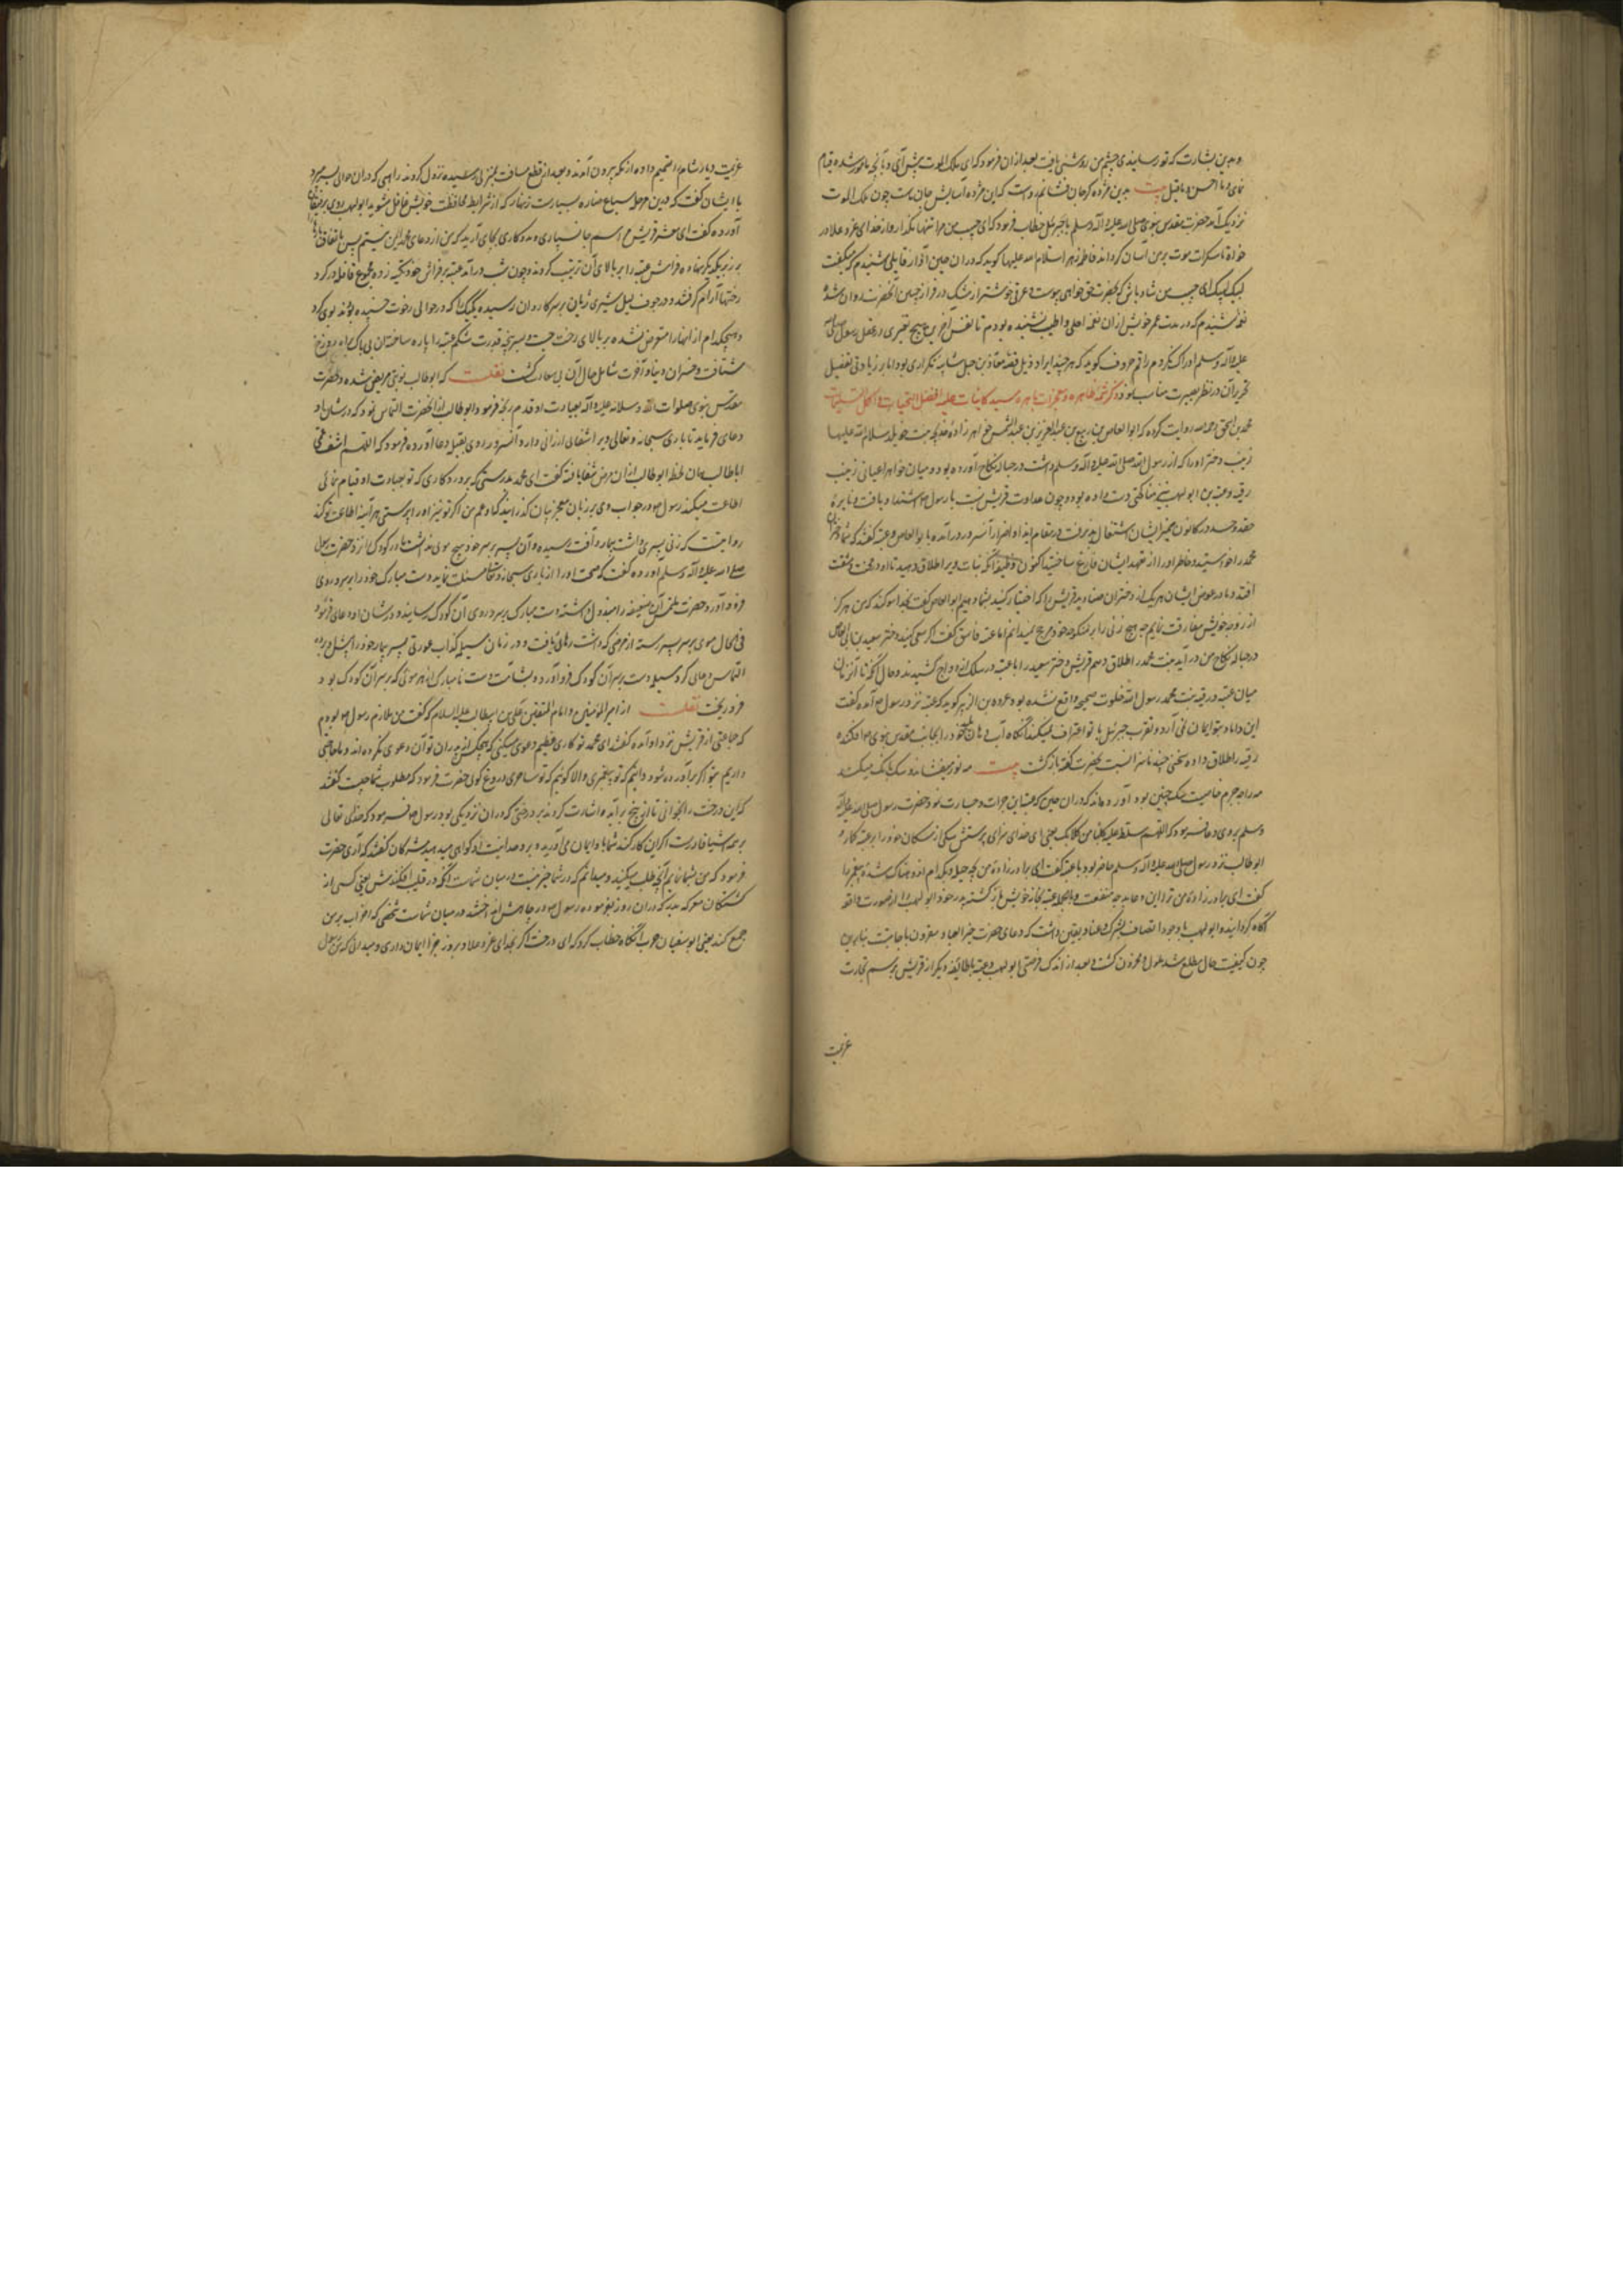 و بدین بشارت که تو رسانیدی چشم من روشنی یافت بعد از ان فرمود که ای ملک الموت پیش آی و بآنچه مامور شده قیام
نمای و ما احسن ما قیل بیت بدین مژده گر جان فشانم رواست که این مژده آسایش جان ماست چون ملک الموت
نزدیک آمد حضرت مقدس نبوی صلی الله علیه و آله و سلم با جبرئیل خطاب فرمود که ای حبیب من مرا تنها مگذار و از خدای عز و علا در
خواه تا سکرات موت بر من آسان گرداند فاطمه زهرا سلام الله علیها گوید که در ان حین آواز قایلی شنیدم که میگفت
لبیک لبیک ای حبیب من شاد باش که بحضرت حق خواهی پیوست و عرقی خوشتر از مشک در فراز جبین آنحضرت روان شد و
نغمه شنیدم که در مدت عمر خویش از ان نغمه احلی و اطیب نشنیده بودم تا نفس آخرین هیچ تغیری در عقل رسول صلی الله
علیه و آله و سلم ادراک نکردم راقم حروف گوید که هر چند ایراد ذیل قصه معاذ بن جبل شایبه تکراری بود اما بر زیادتی تفصیل
تحریر آن در نظر بصیرت مناسب نمود ذکر تتمه ظاهره و معجزات باهره سید کاینات علیه افضل التحیات و اکمل التسلیمات
محمد بن اسحق رحمه الله روایت کرده که ابو العاص بن ربیع بن عبد العزیز بن عبد الشمس خواهر زاده خدیجه بنت خویلد سلام الله علیها
زینب دختر او را که از رسول الله صلی الله علیه و آله و سلم داشت در حباله نکاح آورده بود و میان خواهر اعیانی زینب
رقیه و عتبه بن ابو لهب نیز مناکحتی دست داده بود و چون عداوت قریش نسبت با رسول صلعم اشتداد یافت و نایره
حقد و حسد در کانون ضمیر ایشان اشتعال پذیرفت در مقام ایذا و اضرار آنسرور در آمده با ابو العاص و عتبه گفتند که شما دختران
محمد را خواستید و خاطر او را از تعهد ایشان فارغ ساختید اکنون وظیفه آنکه بنات ویرا طلاق دهید تا او در محنت و مشقت
افتد و ما در عوض ایشان هر یک از دختران صنادید قریش را که اختیار کنید بشما دهیم ابو العاص گفت بخدا سوگند که من هرگز
از زوجه خویش مفارقت ننمایم چه هیچ زنی را بر منکوحه خود ترجیح نمیدانم اما عتبه فاسق گفت اگر سعی کنید دختر سعید بن ابی العاص
در حباله نکاح من در آید بنت محمد را طلاق دهم قریش دختر سعید را با عتبه در سلک ازدواج کشیدند و حال آنکه تا آنزمان
میان عتبه و رقیه بنت محمد رسول الله خلوت صحیحه واقع نشده بود عروه بن الزبیر گوید که عتبه نزد رسول صلعم آمده گفت
این داماد بتو ایمان نمی آرد و بتقرب جبرئیل با تو اعتراف نمیکند آنگاه آب دهان خود را بجانب مقدس نبوی صلعم افکنده
رقیه را طلاق داده سخنی چند ناسزا نسبت بحضرت گفته بازگشت بیت مه نور میفشاند و سگ بانگ میکند
مه را چه جرم خاصیت سگ چنین بود آورده اند که در ان حین که عتبه این جرأت و جسارت نمود حضرت رسول صلی الله علیه و آله
و سلم بر وی دعا فرمود که اللهم سلط علیه کلبا من کلابک یعنی ای خدای سزای پرستش سگی از سگان خود را بر عتبه گمار و
ابو طالب نزد رسول صلی الله علیه و آله و سلم حاضر بود با عتبه گفت ای برادرزاده من بچه حیله و بکدام اندوهناک شده پیغمبر را
گفت ای برادر زاده من ترا این دعا بد چه منفعت و بالجمله عتبه بخانه خویش بازگشته پدر خود ابو لهب را از صورت واقعه
آگاه گردانید و ابو لهب با وجود اتصاف بشرک و عناد یقین داشت که دعای حضرت خیر العباد مقرون باجابتست بنابرین
چون کیفیت حال مطلع شد ملول و محزون گشت و بعد از اندک فرصتی ابو لهب و عتبه با طایفه دیگر از قریش برسم تجارت
عزیمت
عزیمت دیار شام را تصمیم داده از مکه بیرون آمدند و بعد از قطع مسافت بمنزلی رسیده نزول کردند راهبی که در ان حوالی بسر میبرد
با ایشان گفت که درین مرحله سباع ضاره بسیارست زنهار که از شرایط محافظت خویش غافل مشوید ابو لهب روی برفیقان
آورده گفت ای معشر قریش مراسم جانسپاری و مددکاری بجای آرید که من از دعای محمد ایمن نیستم پس باتفاق بارها را
بر زبر یکدیگر نهاده فراش عتبه را بر بالای آن ترتیب کردند و چون شب در آمد عتبه بر فراش خود تکیه زده مجموع قافله در گرد
رختها آرام گرفتند و در جوف لیل شیری ژیان بر سر کاروان رسیده یک یک را که در حوالی رخوت خسپیده بودند بوی کرد
و هیچکدام از آنها را متعرض نشده بر بالای رخت جست و بسر پنجه قدرت شکم عتبه را پاره ساخت آن بی باک براه دوزخ
شتافت و خسران دنیا و آخرت شامل حال آن بی سعادت گشت نقلست که ابو طالب نوبتی مریض شده و حضرت
مقدس نبوی صلوات الله و سلامه علیه و آله بعیادت او قدم رنجه فرمود ابو طالب از آنحضرت التماس نمود که در شان او
دعای فرماید تا باری سبحانه و تعالی ویرا شفای ارزانی دارد آنسرور روی بقبله دعا آورده فرمود که اللهم اشف عمی
ابا طالب همان لحظه ابو طالب از ان مرض شفا یافته گفت ای محمد بدرستی که پروردگاری که تو بعبادت او قیام نمائی
اطاعت میکند رسول صلعم در جواب وی بر زبان معجز بیان گذرانید که ای عم من اگر تو نیز او را پرستی هر آینه اطاعت تو کند
روایتست که زنی پسری داشت بیمار و آفت رسیده و آن پسر بر سر خود هیچ موی نداشت مادر کودک را نزد حضرت رسول
صلی الله علیه و آله و سلم آورده گفت که صحت او را از باری سبحانه و تعالی مسئلت نمای و دست مبارک خود را بر سر و روی
فرود آور حضرت ملتمس آن ضعیفه را مبذول داشته دست مبارک بر سر و روی آن کودک رسانید و در شان او دعای فرمود
فی الحال موی بر سر پسر رسته از مرضی که داشت رهائی یافت و در زمان مسیلمه کذاب عورتی پسر بیمار خود را پیش او برده
التماس دعای کرد مسیلمه دست بر سر آن کودک فرود آورد و بشآمت دست نامبارک او هر موئی که بر سر آن کودک بود
فرو ریخت نقلست از امیر المؤمنین و امام المتقین علی بن ابیطالب علیه السلام که گفت من ملازم رسول صلعم بودم
که جماعتی از قریش نزد او آمده گفتند ای محمد تو کاری عظیم دعوی میکنی که هیچکس از پدران تو آن دعوی نکرده اند و ما حاجتی
داریم بتو اگر برآورده شود دانیم که تو پیغمبری و الا گوئیم که تو ساحری و دروغ گوی حضرت فرمود که مطلوب شما چیست گفتند
که این درخت را بخوانی تا از بیخ برآید و اشارت کردند بر درختی که در ان نزدیکی بود رسول صلعم فرمود که خدای تعالی
بر همه اشیا قادرست اگر این کار کند شما باو ایمان می آورید و بر وحدانیت او گواهی میدهید مشرکان گفتند که آری حضرت
فرمود که من بشما نمایم آنچه طلب میکنید و میدانم که در شما خیر نیست و در میان شماست آنکه در قلیب افکنندش یعنی کسی از
کشتگان معرکه بدر که در ان روز بفرموده رسول صلعم در چاهش انداختند و در میان شماست شخصی که احزاب بر من
جمع کند یعنی ابو سفیان حرب آنگاه خطاب کرد که ای درخت اگر بخدای عز و علا و بروز جزا ایمان داری و میدانی که من رسول